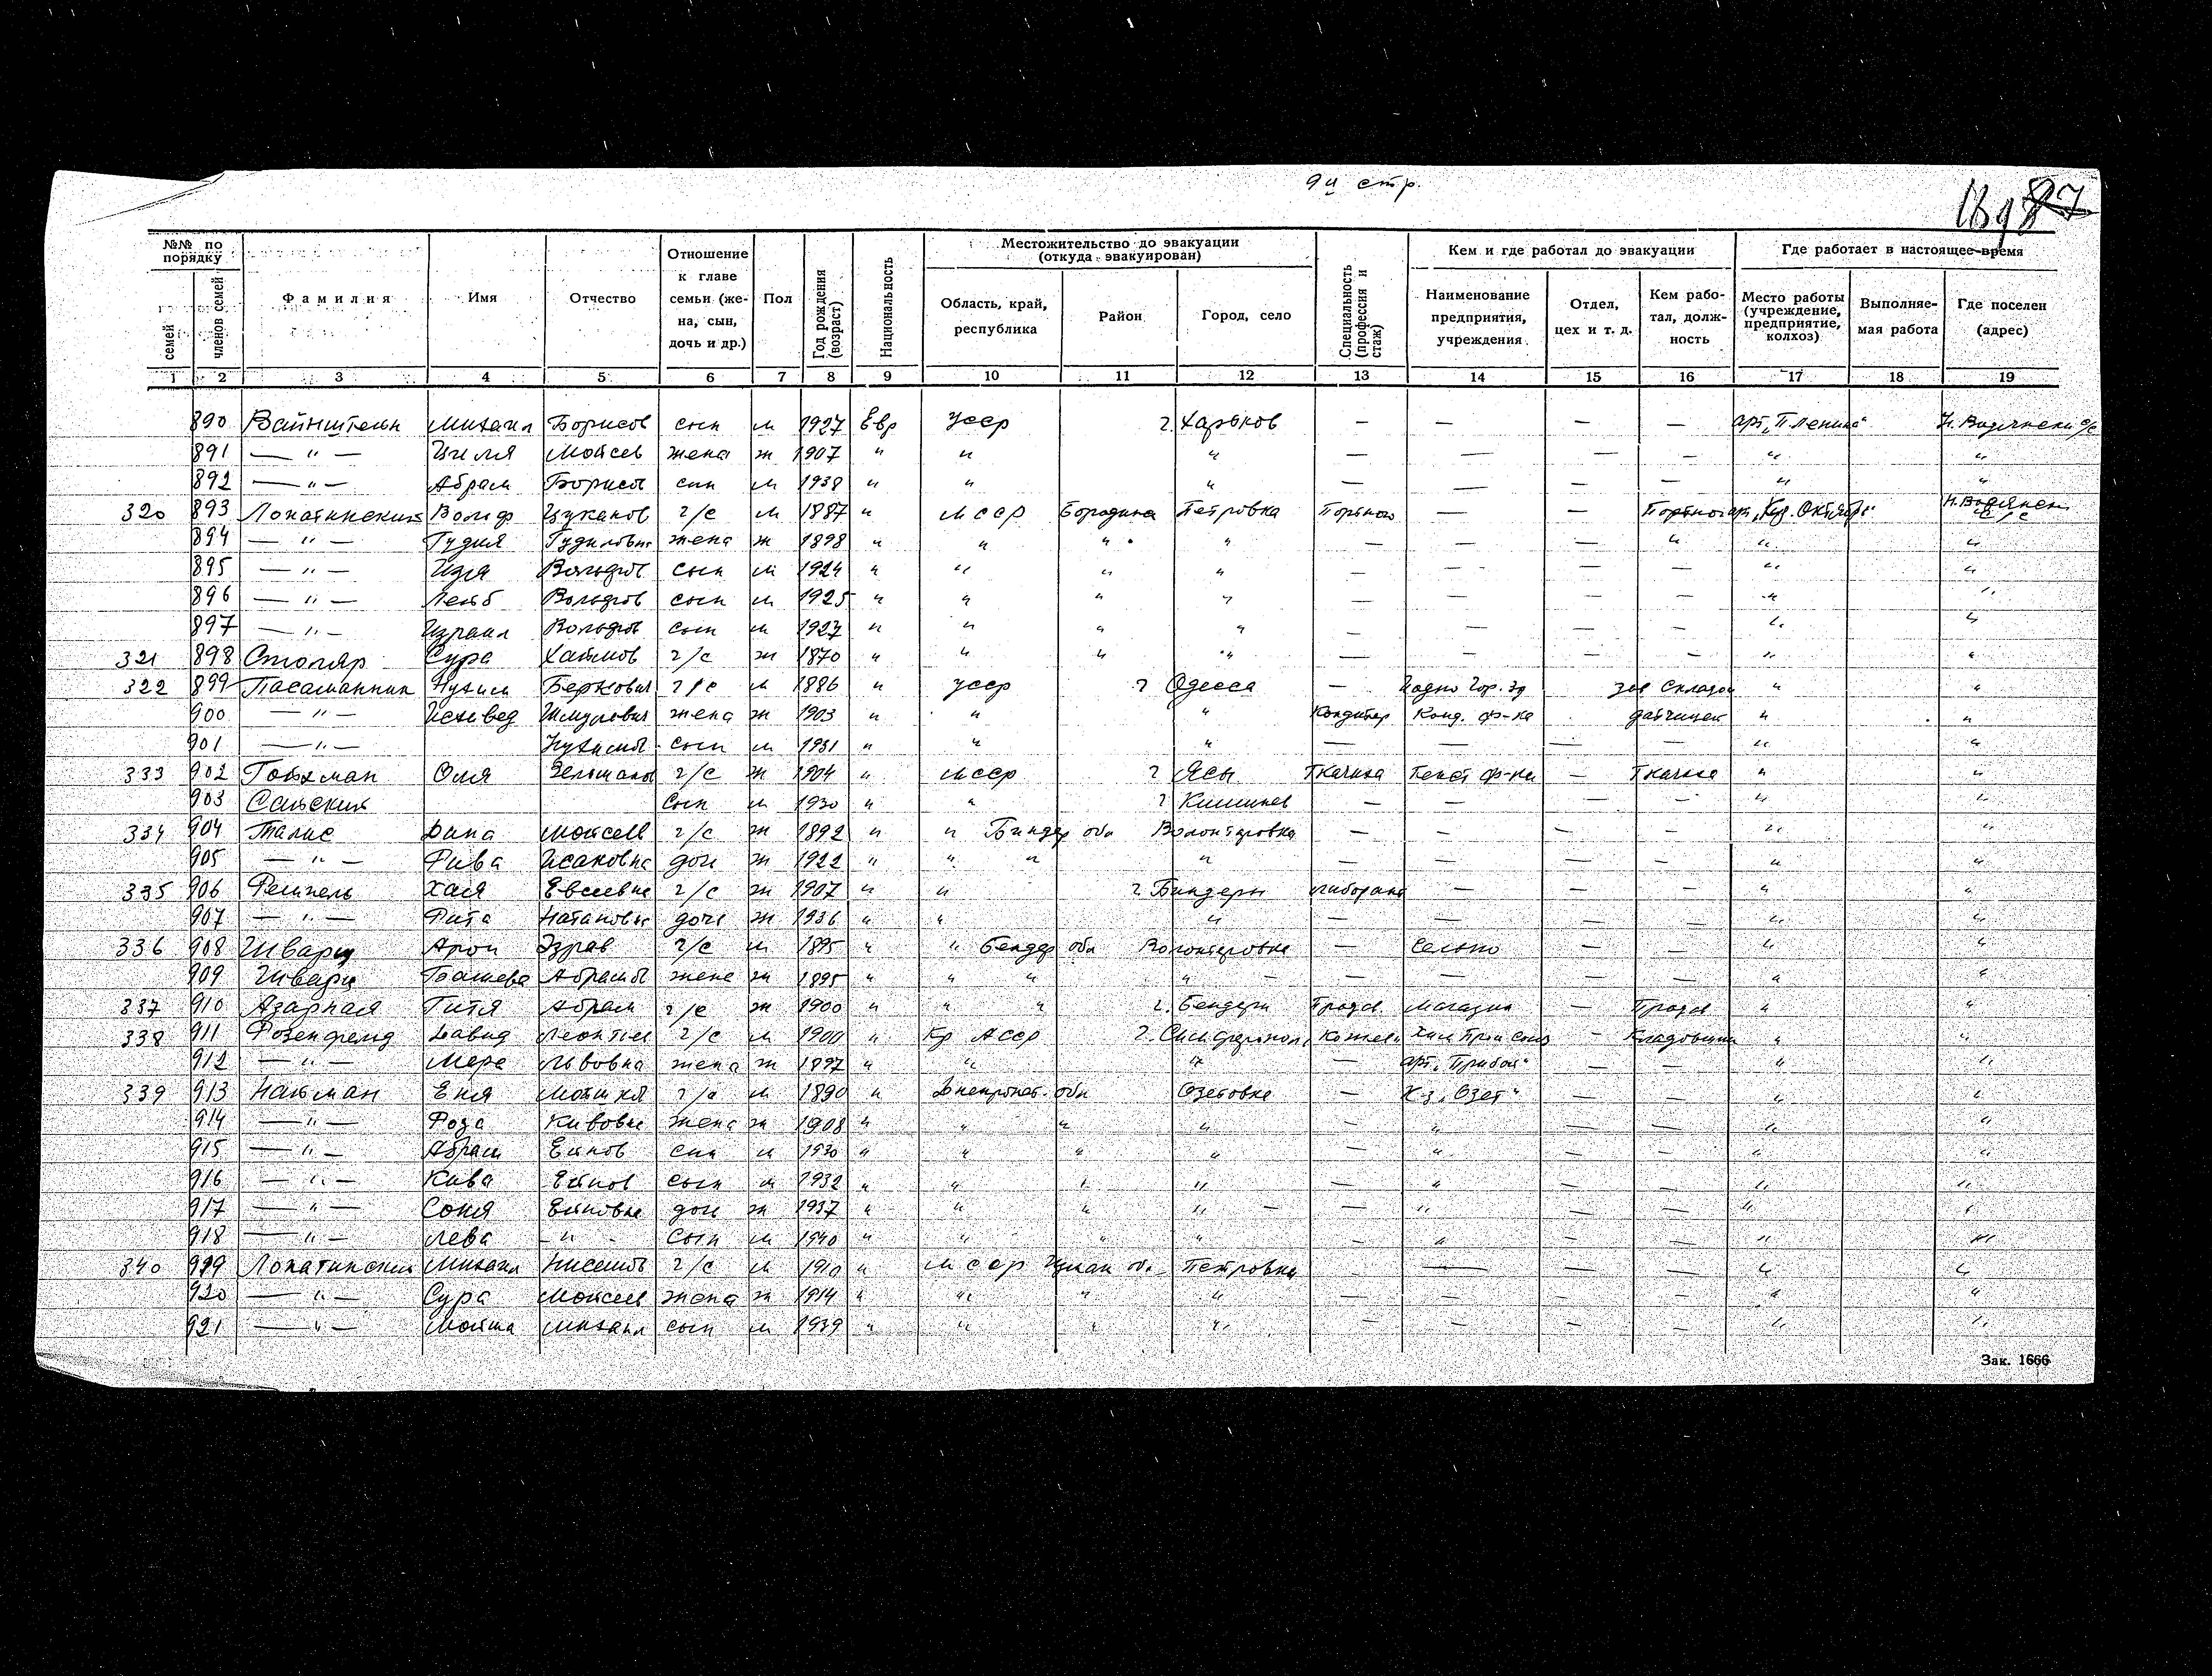 9й стр.
№№ по порядку
Местожительство до эвакуации (откуда эвакуирован)
Кем и где работал до эвакуации
Где работает в настоящее время
семей
членов семей
Фамилия
Имя
Отчество
Отношение к главе семьи (жена, сын, дочь и др.)
Пол
Год рождения (возраст)
Национальность
Область, край, республика
Район
Город, село
Специальность (профессия и стаж)
Наименование предприятия, учреждения
Отдел, цех и т. д.
Кем работал, должность
Место работы (учреждение, предприятие, колхоз)
Выполняемая работа
Где поселен (адрес)
1 2 3 4 5 6 7 8 9 10 11 12 13 14 15 16 17 18 19
890 Вайнштейн Михаил Борисов сын м 1927 Евр УССР г. Харьков — — — —
891 — " — Циля Мойсев жена ж 1907 " " " — — — — " "
892 — " — Абрам Борисов сын м 1938 " " " — — — — " "
320 893 Лопатинский Вольф Цуканов г/с м 1887 " МССР Бородина Петровка Портной — —
894 — " — Гудля Гудиловна жена ж 1898 " " " " — — — " " "
895 — " — Изя Вольфов сын м 1924 " " " " — — — — " "
896 — " — Лейб Вольфов сын м 1925 " " " " — — — — " "
897 — " — Израил Вольфов сын м 1927 " " " " — — — — " "
321 898 Столяр Сура Хаимов г/с ж 1870 " " " " — — — — " "
322 899 Пасаманник Нухим Беркович г/с м 1886 " УССР г Одесса — зав складом " "
900 — " — Шмулевич жена ж 1903 " " " Кондитер Конд. ф-ка " "
901 — " — Нухимов сын м 1931 " " " — — — — " "
333 902 Гойхман Оля Зельманов г/с ж 1904 " МССР г Ясы Ткачиха Текст ф-ка — Ткачиха " "
903 сын м 1930 " " г Кишинев — — — — " "
334 904 Талис Дина Мойсеев г/с ж 1892 " " Биндер обл Волонтировка — — — — " "
905 — " — Рива Исаковна доч ж 1922 " " " " — — — — " "
335 906 Хая Евсеевна г/с ж 1907 " " г Биндеры — — — " "
907 — " — Рита Натановн доч ж 1936 " " " — — — — " "
336 908 Шварц Арон г/с м 1895 " " Бендер обл Волонтировка — Сельпо — — " "
909 Шварц Башева Абрамов жена ж 1895 " " " " — — — — " "
337 910 Азарная Гитя Абрам г/с ж 1900 " " " г. Бендеры Продав. Магазин — Продав " "
338 911 Розенфельд Давид Леонтьев г/с м 1900 " Кр АССР г. Симферополь — Кладовщик " "
912 — " — Мера Львовна жена ж 1897 " " " — арт. „Прибой" " "
339 913 Найман г/с м 1890 " Днепропет. обл Озетовка — К-з „Озет" " "
914 — " — Роза Кивовна жена ж 1908 " " " " — " — — " "
915 — " — Абрам Ейнов сын м 1930 " " " " — " — — " "
916 — " — Кива Ейнов сын м 1932 " " " " — " — — " "
917 — " — Соня Ейновна доч ж 1937 " " " " — " — — " "
918 — " — Лева — " — сын м 1940 " " " " — " — — " "
340 919 Лопатинский Михаил Нисимов г/с м 1910 " МССР Петровка — — — — " "
920 — " — Сура Мойсеев жена ж 1914 " " " " — — — — " "
921 — " — Мойша Михаил сын м 1939 " " " " — — — — " "
Зак. 1666